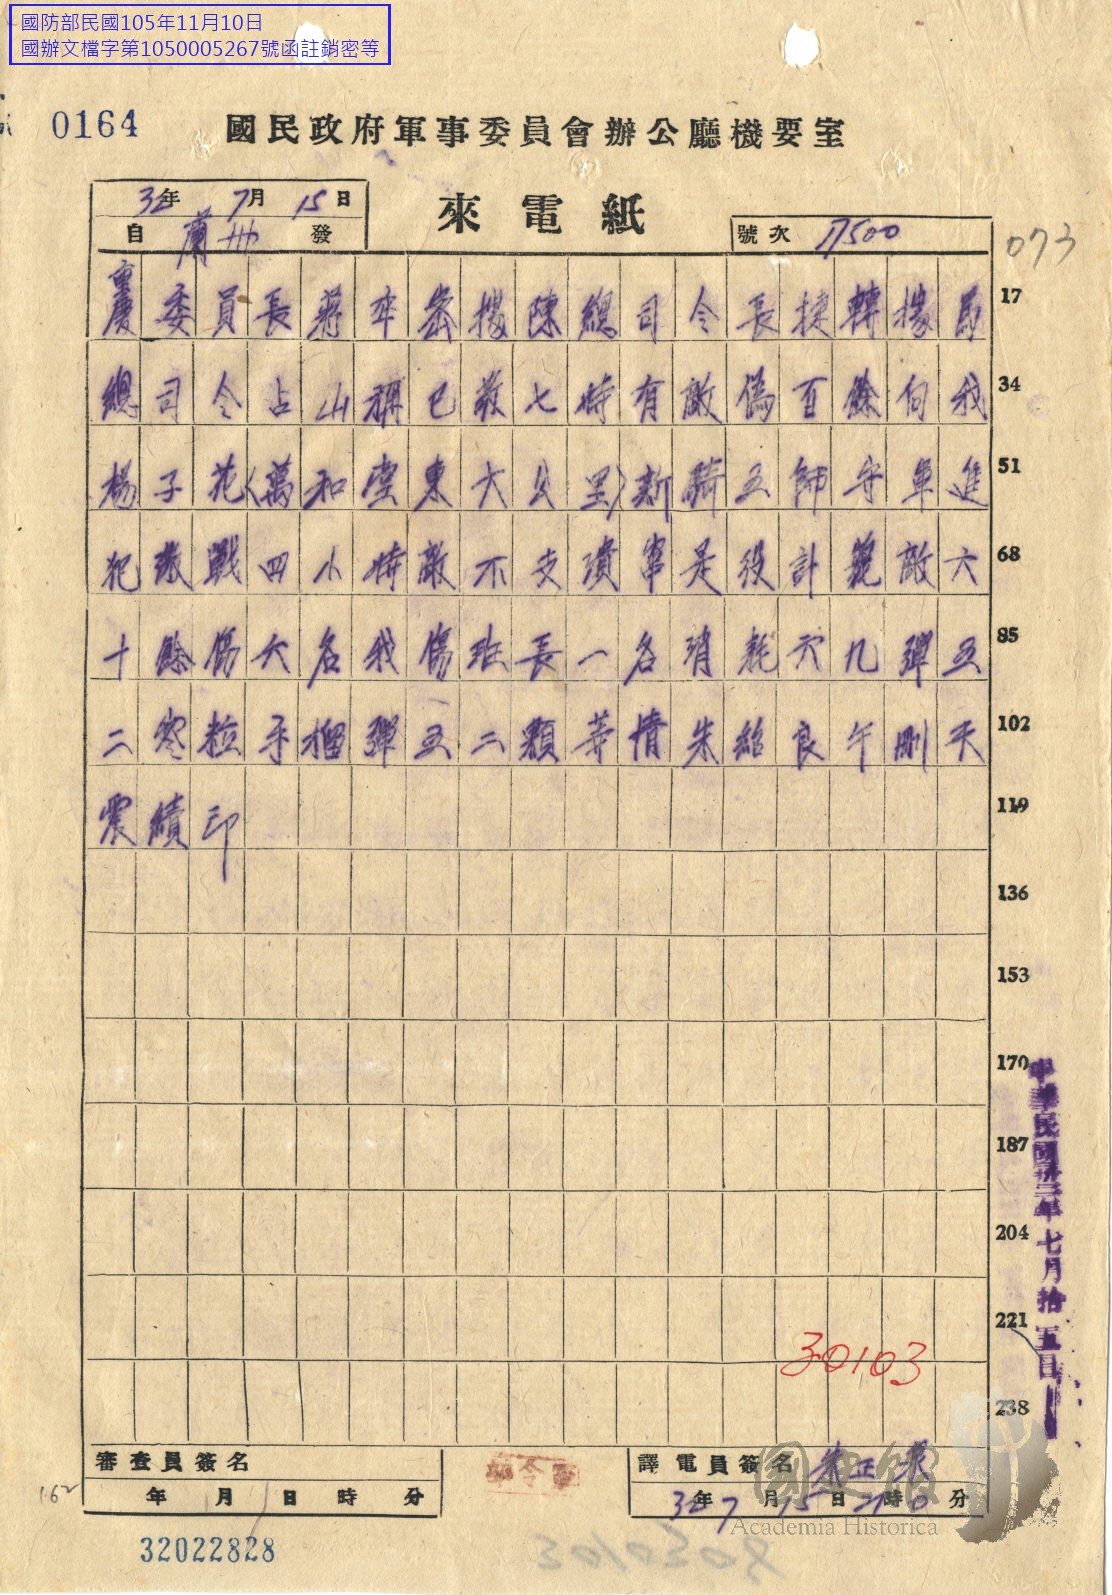 國防部民國105年11月10日
國辦文檔字第1050005267號函註銷密等
0164
國民政府軍事委員會辦公廳機要室
32年 7月 15日
自 蘭州 發
來電紙
號次 17500
073
重慶委員長蔣 密據陳總司令長捷轉據馬 17
總司令占山稱已 七時有敵偽百餘向我 34
楊子花(萬和堂東大公里)新騎五師守軍進 51
犯 戰四小時敵不支潰竄是役計斃敵六 68
十餘傷六名我傷班長一名消耗 九彈五 85
二寒粒手榴彈五二顆等情朱紹良午刪 102
震績印 119
136
153
170
187
204
221
238
中華民國 年七月拾五日
30103
審查員簽名
年 月 日 時 分
譯電員簽名 朱正
32年 7月 15日 21時 0分
162
32022828
國史館
Academia Historica